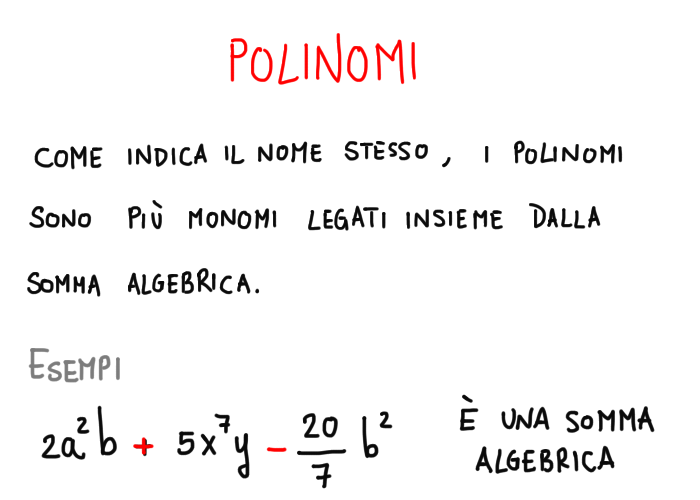 POLINOMI
COME INDICA IL NOME STESSO, I POLINOMI
SONO PIÙ MONOMI LEGATI INSIEME DALLA
SOMMA ALGEBRICA.
ESEMPI
2a²b + 5x⁷y - 20/7 b²
È UNA SOMMA
ALGEBRICA